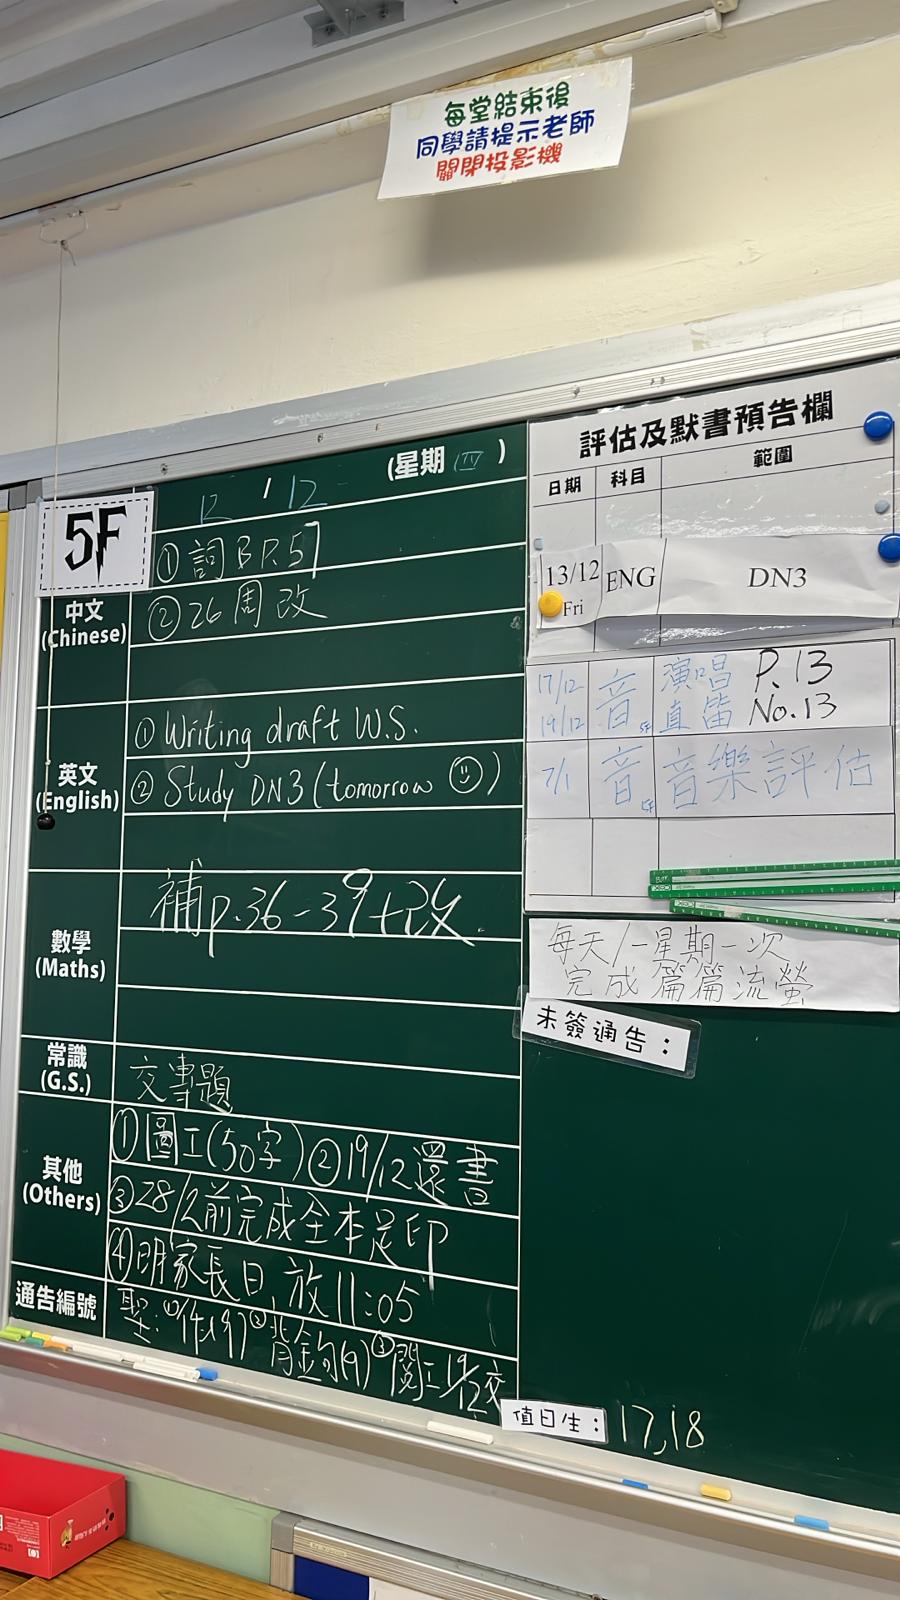 每堂結束後
同學請提示老師
關閉投影機
12 / 12 (星期 四 )
5F
中文
(Chinese)
① 詞 B P.57
② 26 周 改
英文
(English)
① Writing draft W.S.
② Study DN3 (tomorrow ☺)
數學
(Maths)
補 p.36-39+改
常識
(G.S.)
交專題
其他
(Others)
① 圖工(50字) ② 19/12還書
③ 28/2前完成全本足印
④ 明家長日,放11:05
通告編號
聖:
評估及默書預告欄
日期 科目 範圍
13/12 Fri ENG DN3
17/12 音 演唱 P.13
19/12 直笛 No.13
7/1 音 音樂評估
每天/一星期一次
完成篇篇流螢
未簽通告:
值日生: 17,18